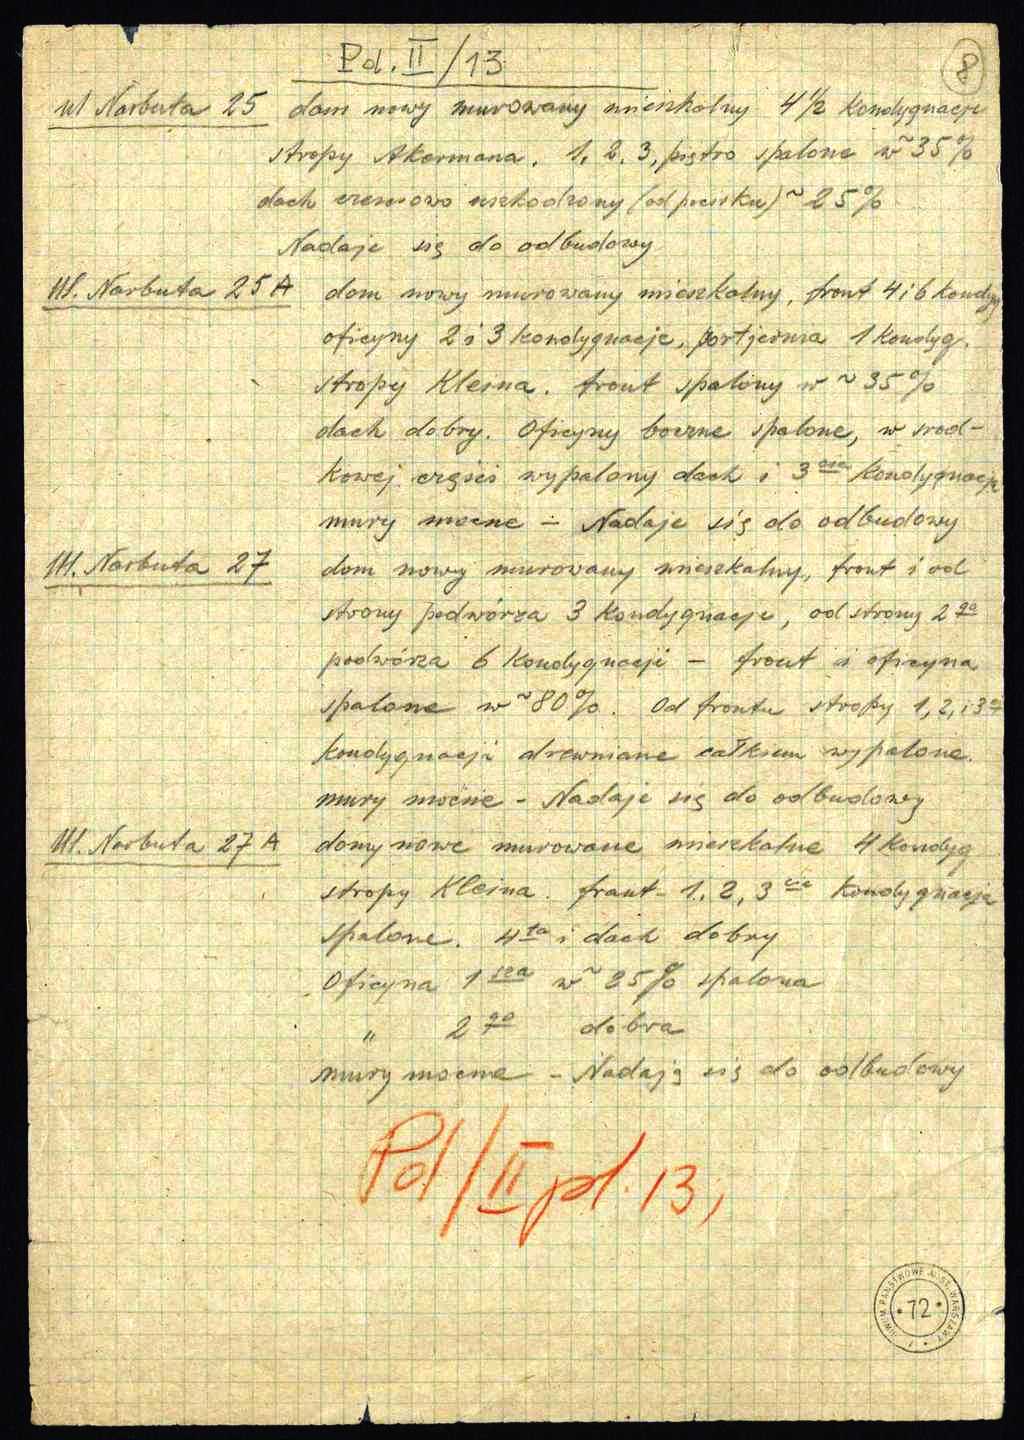 Pd. II/13
8
ul Narbuta 25 dom nowy murowany mieszkalny 4½ kondygnacje
stropy Akermana. 1, 2, 3, piętro spalone w ~ 35%
dach czesciowo uszkodzony (od pocisku) ~ 25%
Nadaje się do odbudowy
Ul. Narbuta 25 A dom nowy murowany mieszkalny, front 4 i 6 kondyg
oficyny 2 i 3 kondygnacje, portjernia 1 kondyg.
stropy Kleina. front spalony w ~ 35%
dach dobry. Oficyny boczne spalone, w srod-
kowej części wypalony dach i 3 cia kondygnacja
mury mocne – Nadaje się do odbudowy
Ul. Narbuta 27 dom nowy murowany mieszkalny, front i od
strony podwórza 3 kondygnacje, od strony 2 go
podwórza 6 kondygnacji – front i oficyna
spalone w ~ 80%. Od frontu stropy 1, 2, i 3 ej
kondygnacji drewniane całkiem wypalone.
mury mocne – Nadaje się do odbudowy
Ul. Narbuta 27 A domy nowe murowane mieszkalne 4 kondyg
stropy Kleina. front – 1, 2, 3 cia kondygnacja
spalone. 4 ta i dach dobry
Oficyna 1 sza w ~ 25% spalona
„ 2 ga dobra
mury mocne – Nadają się do odbudowy
Pd/II pl. 13,
ARCHIWUM PAŃSTWOWE M. ST. WARSZAWY
• 72 •